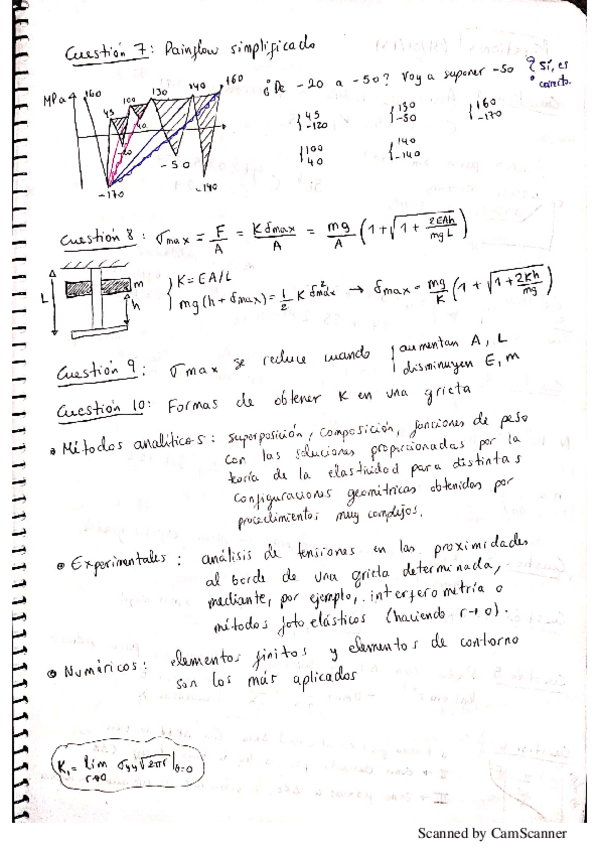 Cuestión 7: Rainflow simplificado
MPa 160 45 100 130 140 160
¿De -20 a -50? Voy a suponer -50 Sí, es correcto.
-20 40 -50 -140 -170
{45 -120 {130 -50 {160 -170
{100 40 {140 -140
Cuestión 8: σmax = F/A = K δmax/A = mg/A (1+√(1+ 2EAh/mgL))
L m h
{K = EA/L
mg(h+δmax) = 1/2 K δ²max → δmax = mg/K (1+√(1+2Kh/mg))
Cuestión 9: σmax se reduce cuando {aumentan A, L
disminuyen E, m
Cuestión 10: Formas de obtener K en una grieta
• Métodos analíticos: superposición, composición, funciones de peso
con las soluciones proporcionadas por la
teoría de la elasticidad para distintas
configuraciones geométricas obtenidas por
procedimientos muy complejos.
• Experimentales: análisis de tensiones en las proximidades
al borde de una grieta determinada,
mediante, por ejemplo, interferometría o
métodos fotoelásticos (haciendo r→0).
• Numéricos: elementos finitos y elementos de contorno
son los más aplicados
K₁ = lim r→0 σyy √2πr |θ=0
Scanned by CamScanner